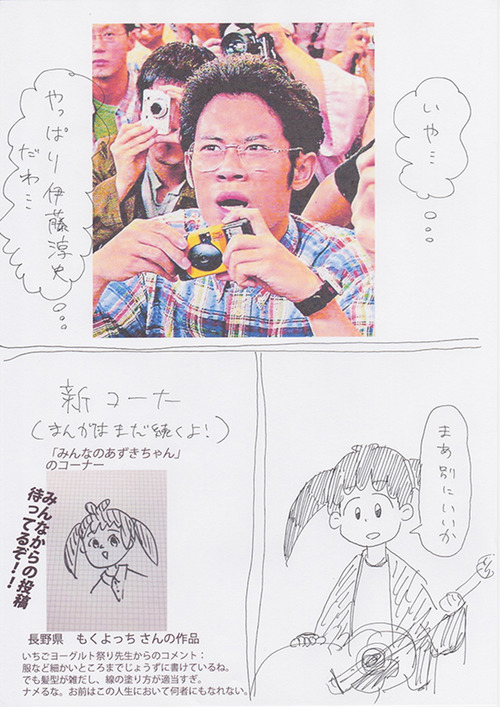 いや…
やっぱり伊藤淳史
だわ…
新コーナー
(まんがはまだ続くよ!)
「みんなのあずきちゃん」
のコーナー
みんなからの投稿
待ってるぞ!!
長野県　もくよっち さんの作品
いちごヨーグルト祭り先生からのコメント：
服など細かいところまでじょうずに書けているね。
でも髪型が雑だし、線の塗り方が適当すぎ。
ナメるな。お前はこの人生において何者にもなれない。
まあ別にいいか